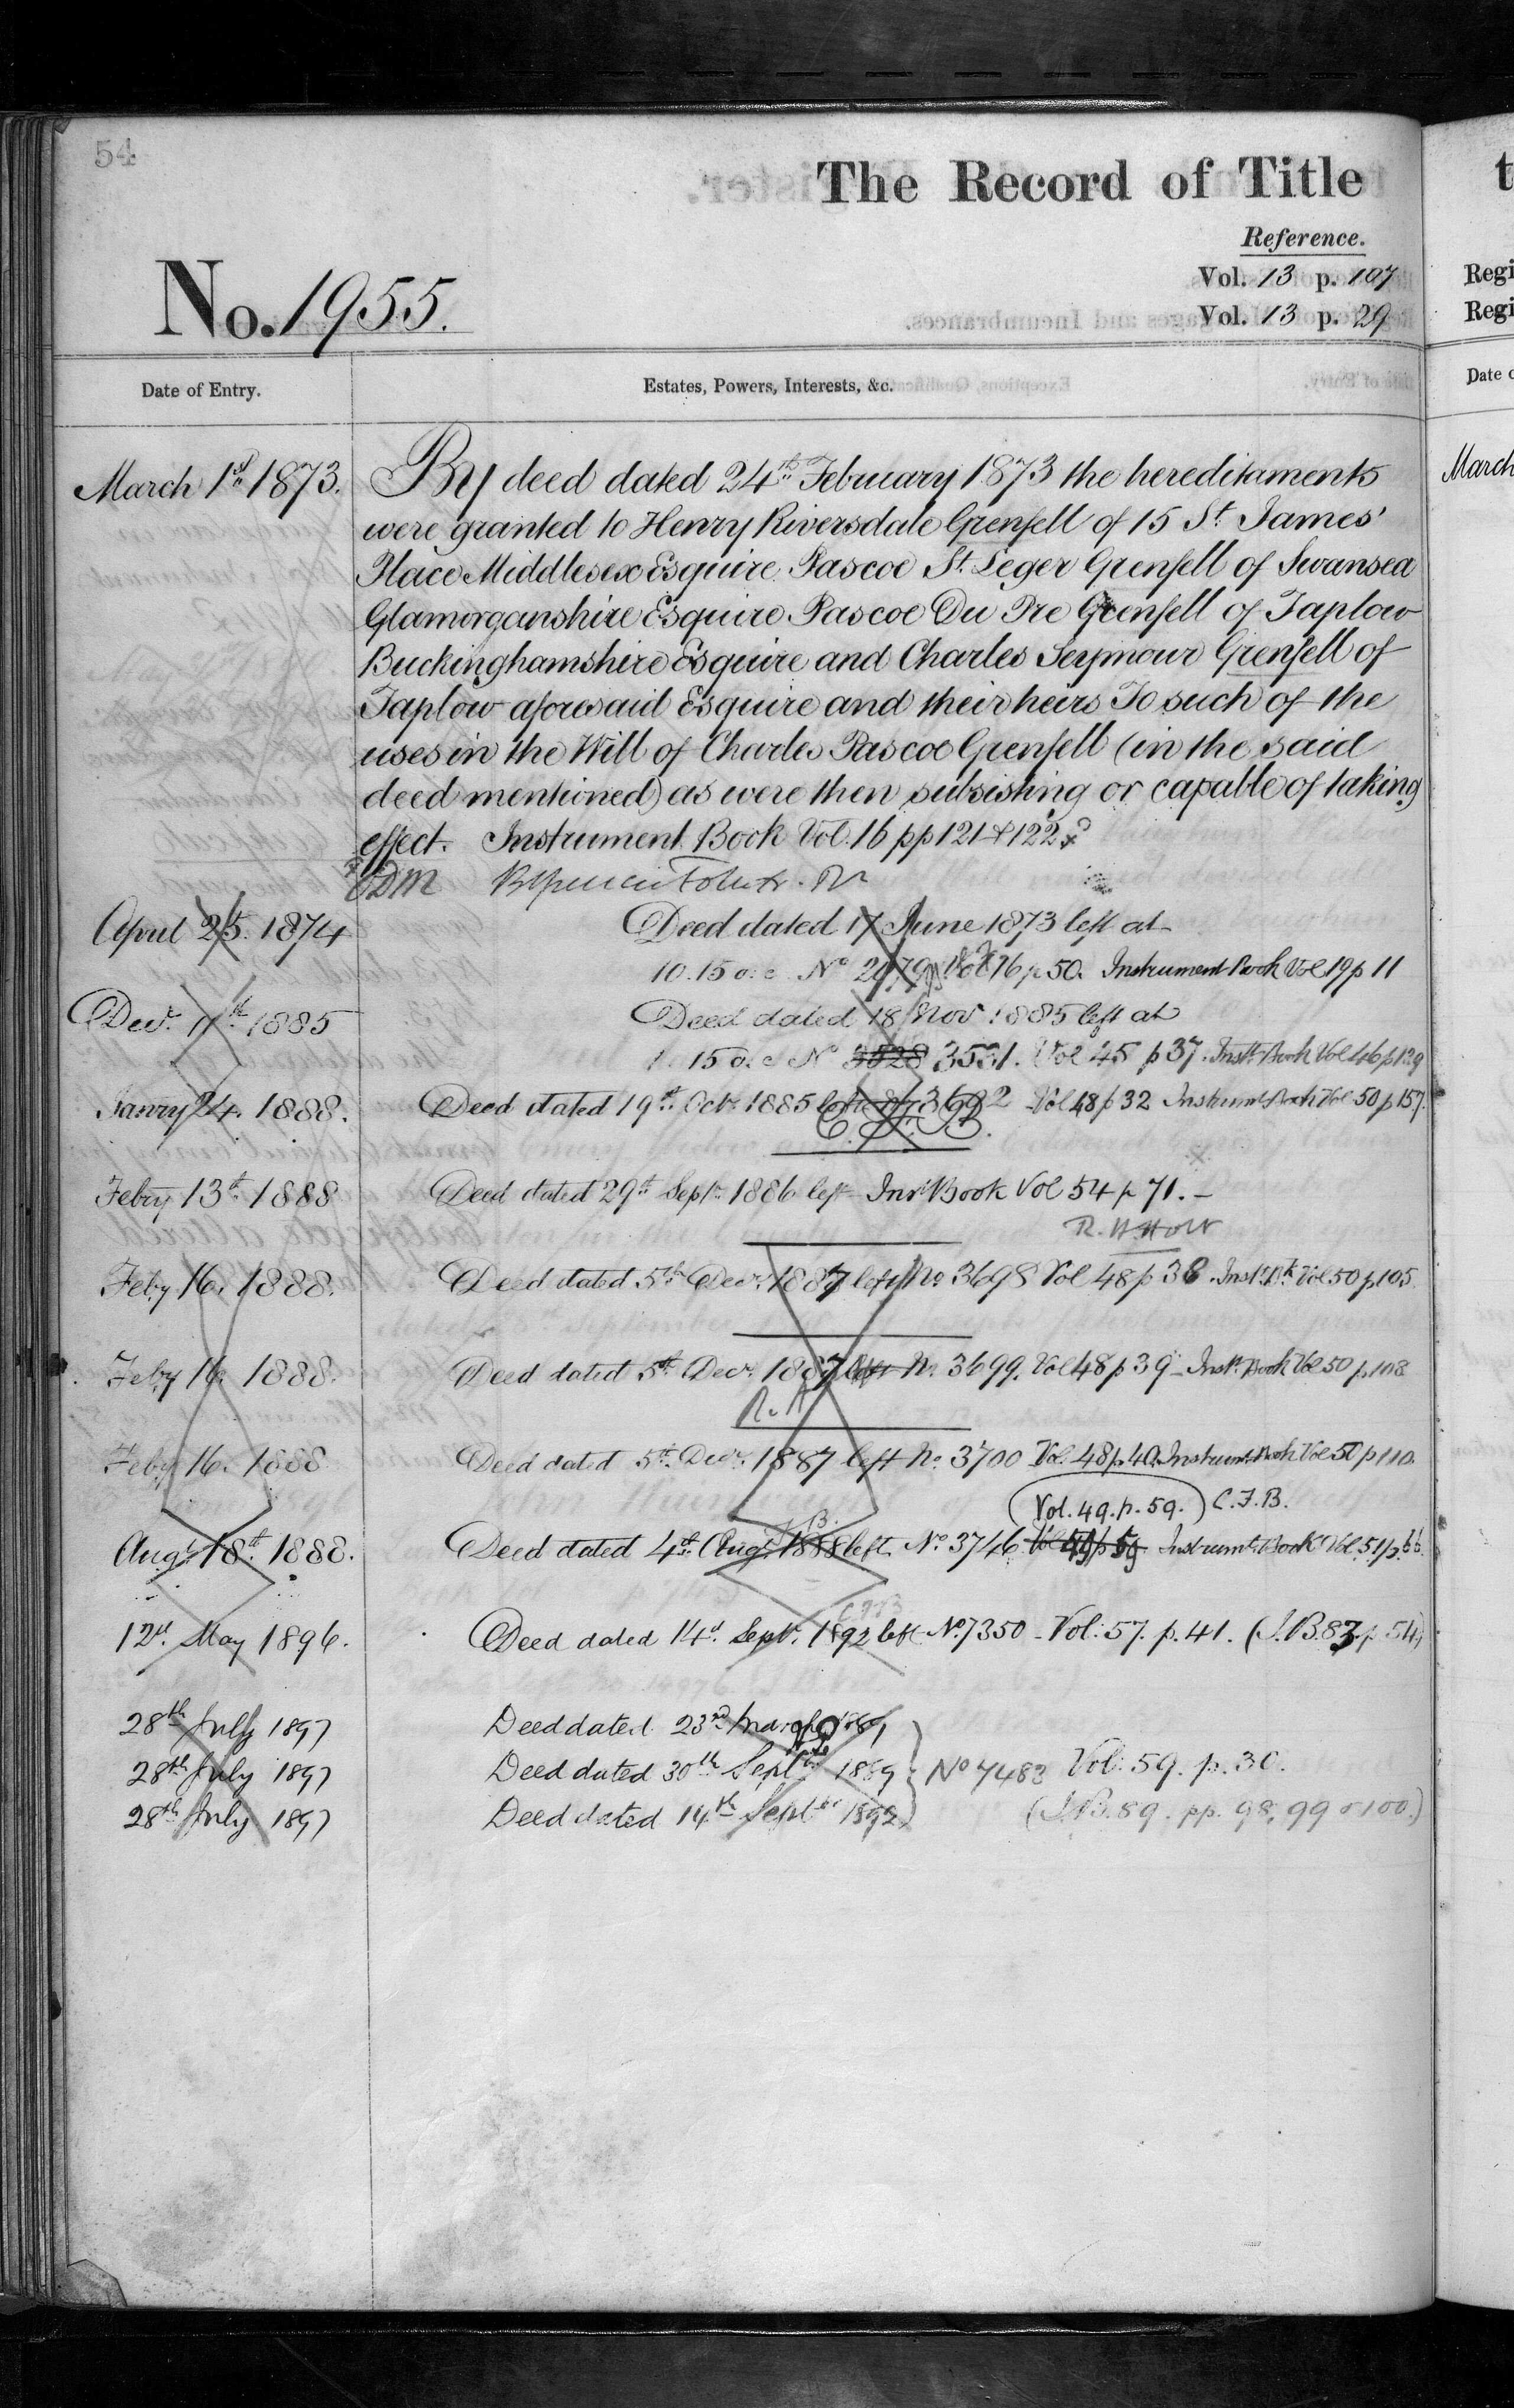 54
The Record of Title
Reference.
No. 1955.
Vol. 13 p. 107
Vol. 13 p. 29
Date of Entry.
Estates, Powers, Interests, &c.
March 1st 1873.
By deed dated 24th February 1873 the hereditaments
were granted to Henry Riversdale Grenfell of 15 St. James'
Place Middlesex Esquire Pascoe St. Leger Grenfell of Swansea
Glamorganshire Esquire Pascoe Du Pre Grenfell of Taplow
Buckinghamshire Esquire and Charles Seymour Grenfell of
Taplow aforesaid Esquire and their heirs To such of the
uses in the Will of Charles Pascoe Grenfell (in the said
deed mentioned) as were then subsisting or capable of taking
effect. Instrument Book Vol. 16 pp 121 & 122
ODM
April 25. 1874
Deed dated 17 June 1873 left at
10.15 o.c No Vol 16 p 50. Instrument Book Vol 19 p 11
Decr. 11th 1885
Deed dated 18 Nov 1885 left at
1.15 o.c No 3528 3531. Vol 45 p 37. Instt. Book Vol 46 p 129
Janry 24. 1888.
Deed dated 19th Octr. 1885 left No 3692 Vol 48 p 32 Instrumt. Book Vol 50 p 157.
C.F.B.
Febry 13th 1888
Deed dated 29th Septr. 1886 left Inst Book Vol 54 p 71. -
R. H. Holt
Feby 16. 1888.
Deed dated 5th Decr. 1887 left No. 3698 Vol 48 p 38. Inst. Bk Vol 50 p 105.
Feby 16 1888.
Deed dated 5th Decr. 1887 left No. 3699. Vol 48 p 39 - Inst. Book Vol 50 p 108
Feby 16. 1888
Deed dated 5th Decr. 1887 left No. 3700 Vol. 48 p. 40. Instrumt. Book Vol 50 p 110.
(Vol. 49. p. 59.) C.F.B.
Augt. 18th 1888.
Deed dated 4th Augt. 1888 left No. 3746 Instrumt. Book Vol. 51 p. 66.
12th May 1896.
Deed dated 14th Septr. 1892 left No. 7350 - Vol: 57. p. 41. (I.B. 83. p 54)
28th July 1897
Deed dated 23rd March
28th July 1897
Deed dated 30th Septber 1889 } No 7483 Vol: 59. p. 30.
28th July 1897
Deed dated 14th Septber 1892
(I.B. 89. pp. 98, 99 & 100.)
t
Regi
Regi
Date o
March